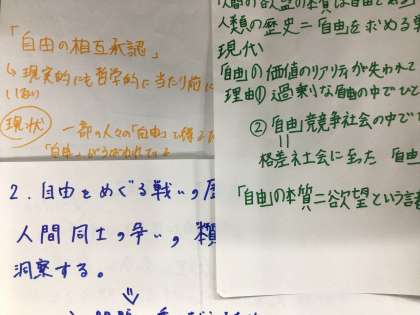 「自由の相互承認」
↳ 現実的にも哲学的に当たり前に
現状 一部の人々の「自由」で得
「自由」がうばわれている
2. 自由をめぐる戦い、
人間同士の争い、本質
洞察する。
⇓
人間の欲望の本質は自由
人類の歴史=「自由」を求める
現代
「自由」の価値のリアリティが失われて
理由① 過剰な自由の中でひと
②「自由」競争社会の中で
||
格差社会に至った「自由
「自由」の本質=欲望という